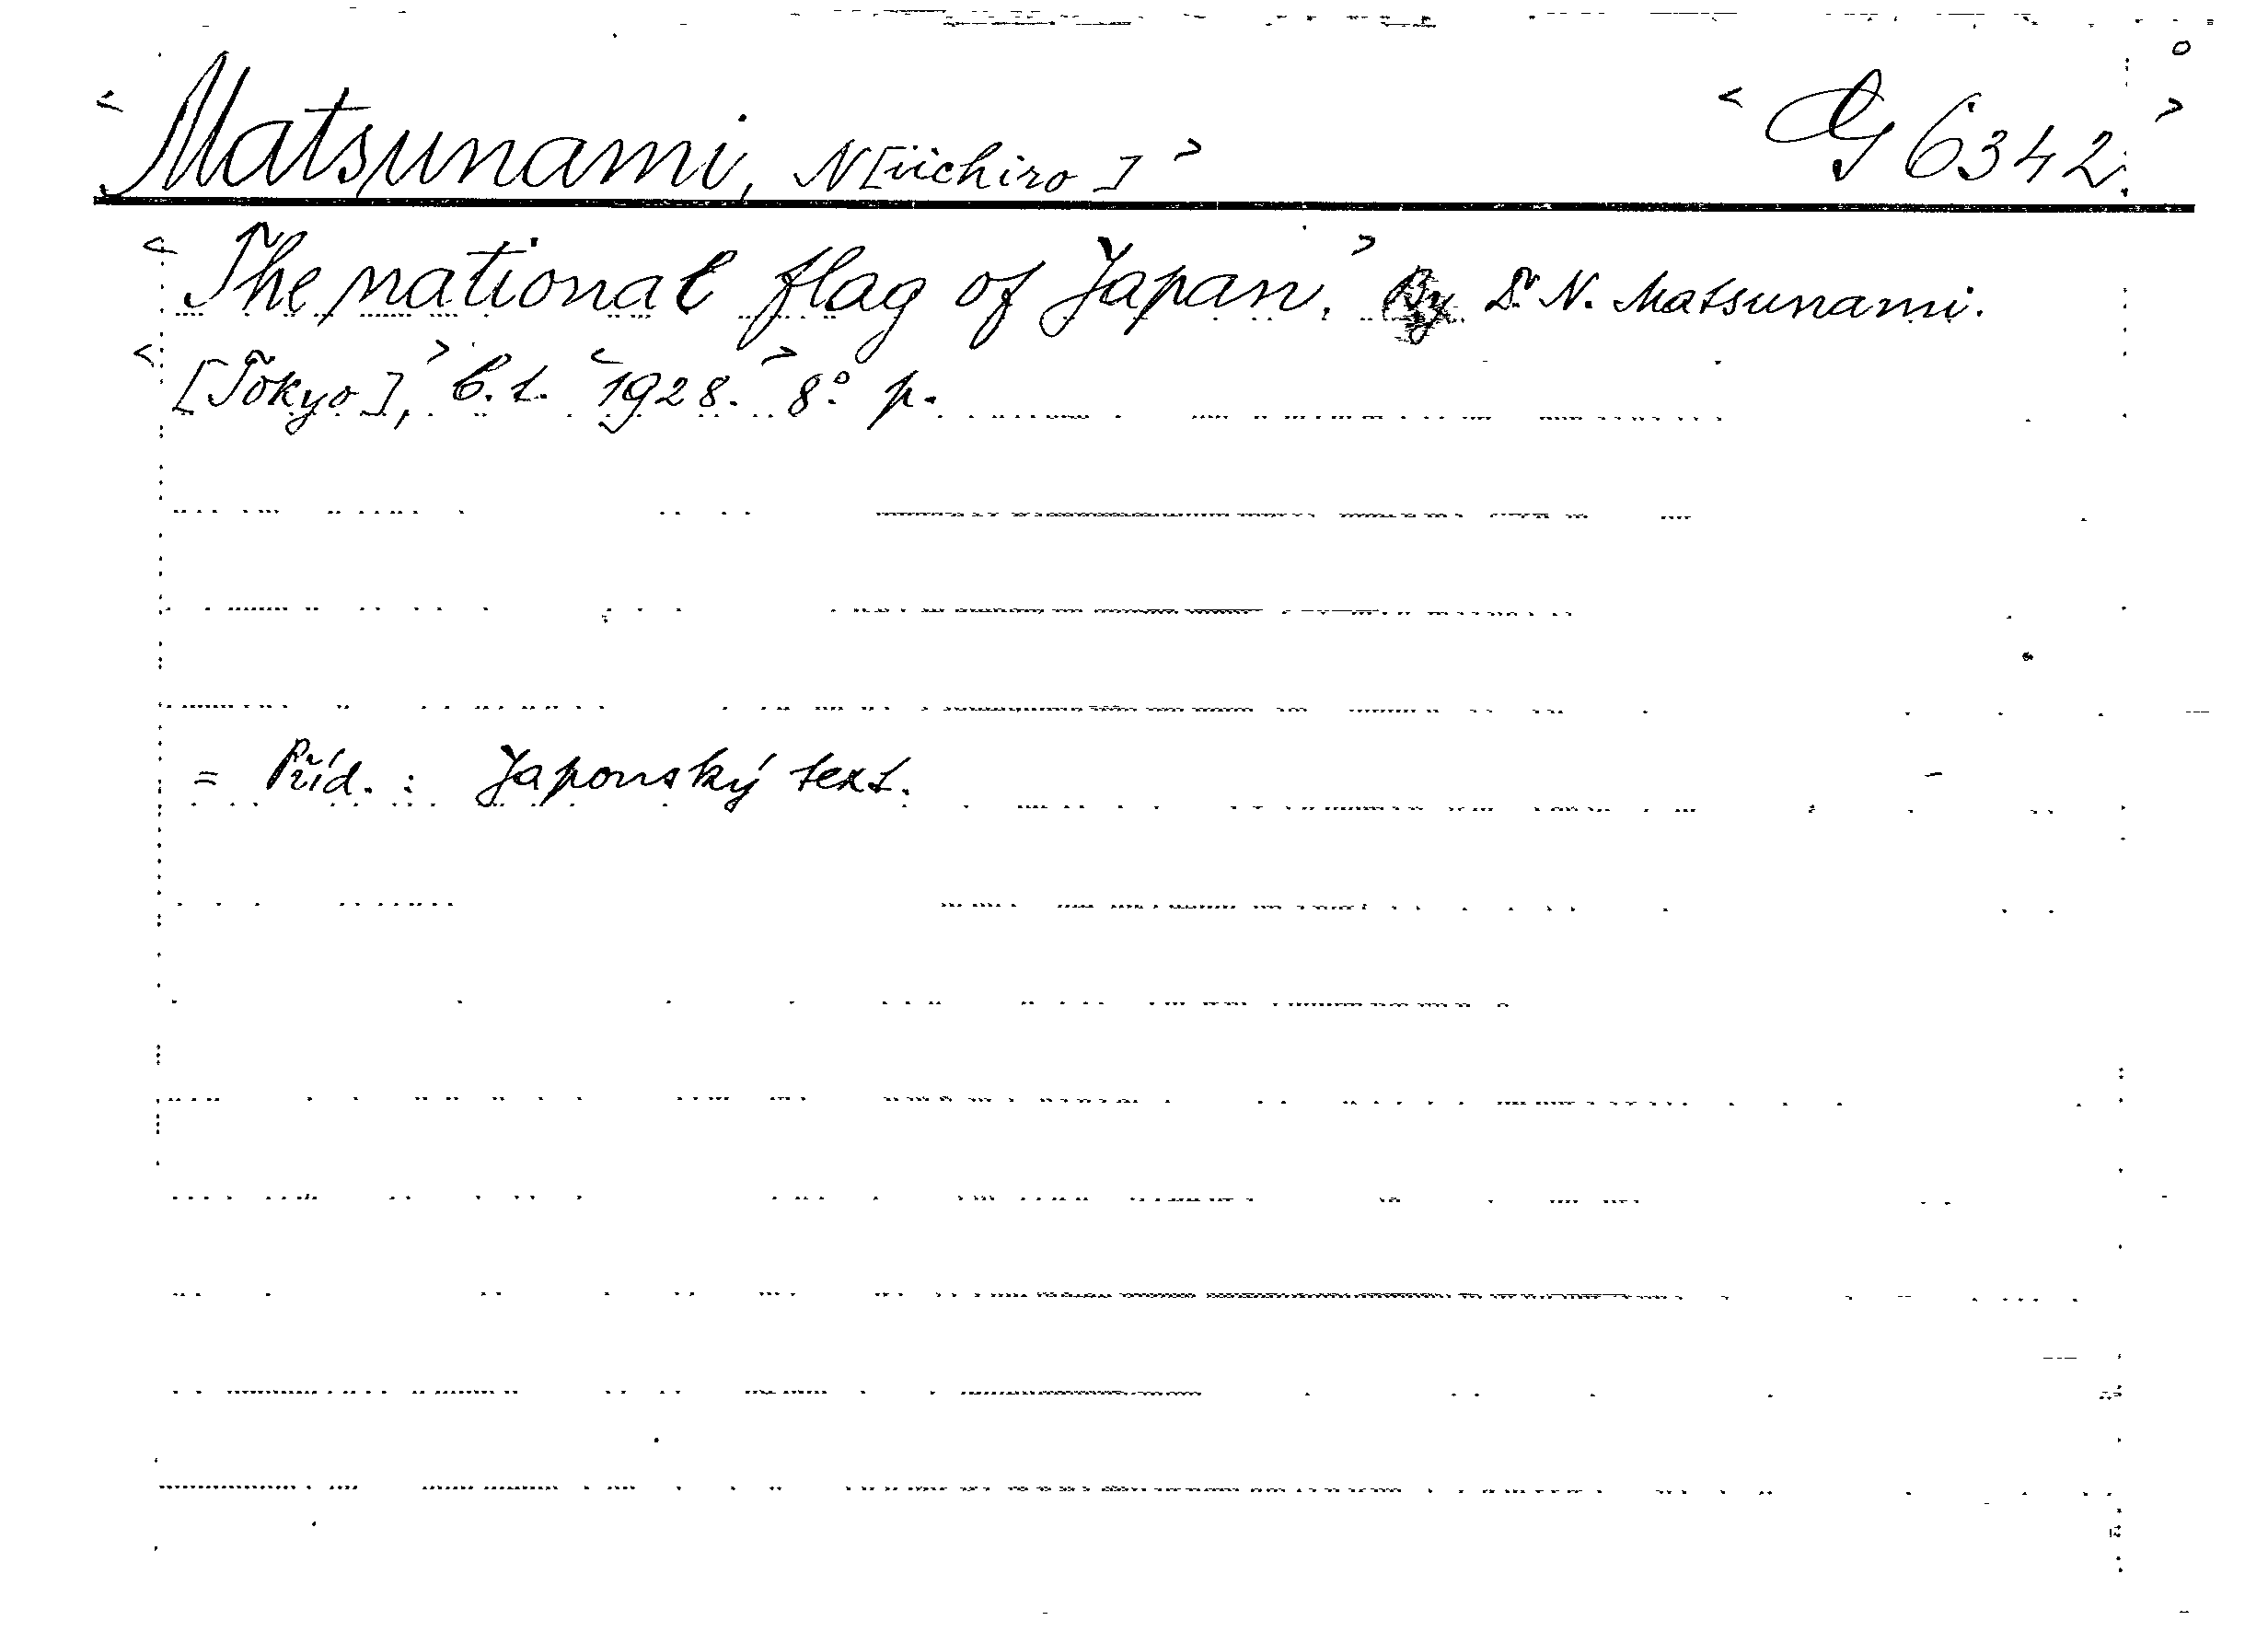 < Matsunami, N[iichiro] > < G 6342. >
< The national flag of Japan. > By Dr N. Matsunami.
< [Tokyo], > C. t. < 1928. > 8° p.
= Příd. : Japonský text.